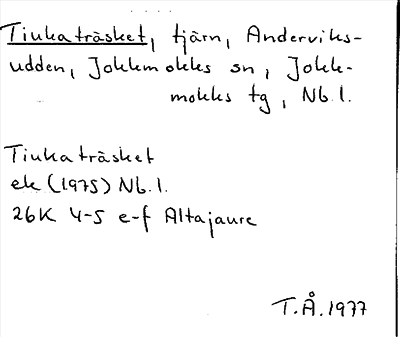 Tiukaträsket, tjärn, Anderviks-
udden, Jokkmokks sn, Jokk-
mokks tg, Nb.l.
Tiukaträsket
ek (1975) Nb.l.
26K 4-5 e-f Altajaure
T.Å.1977